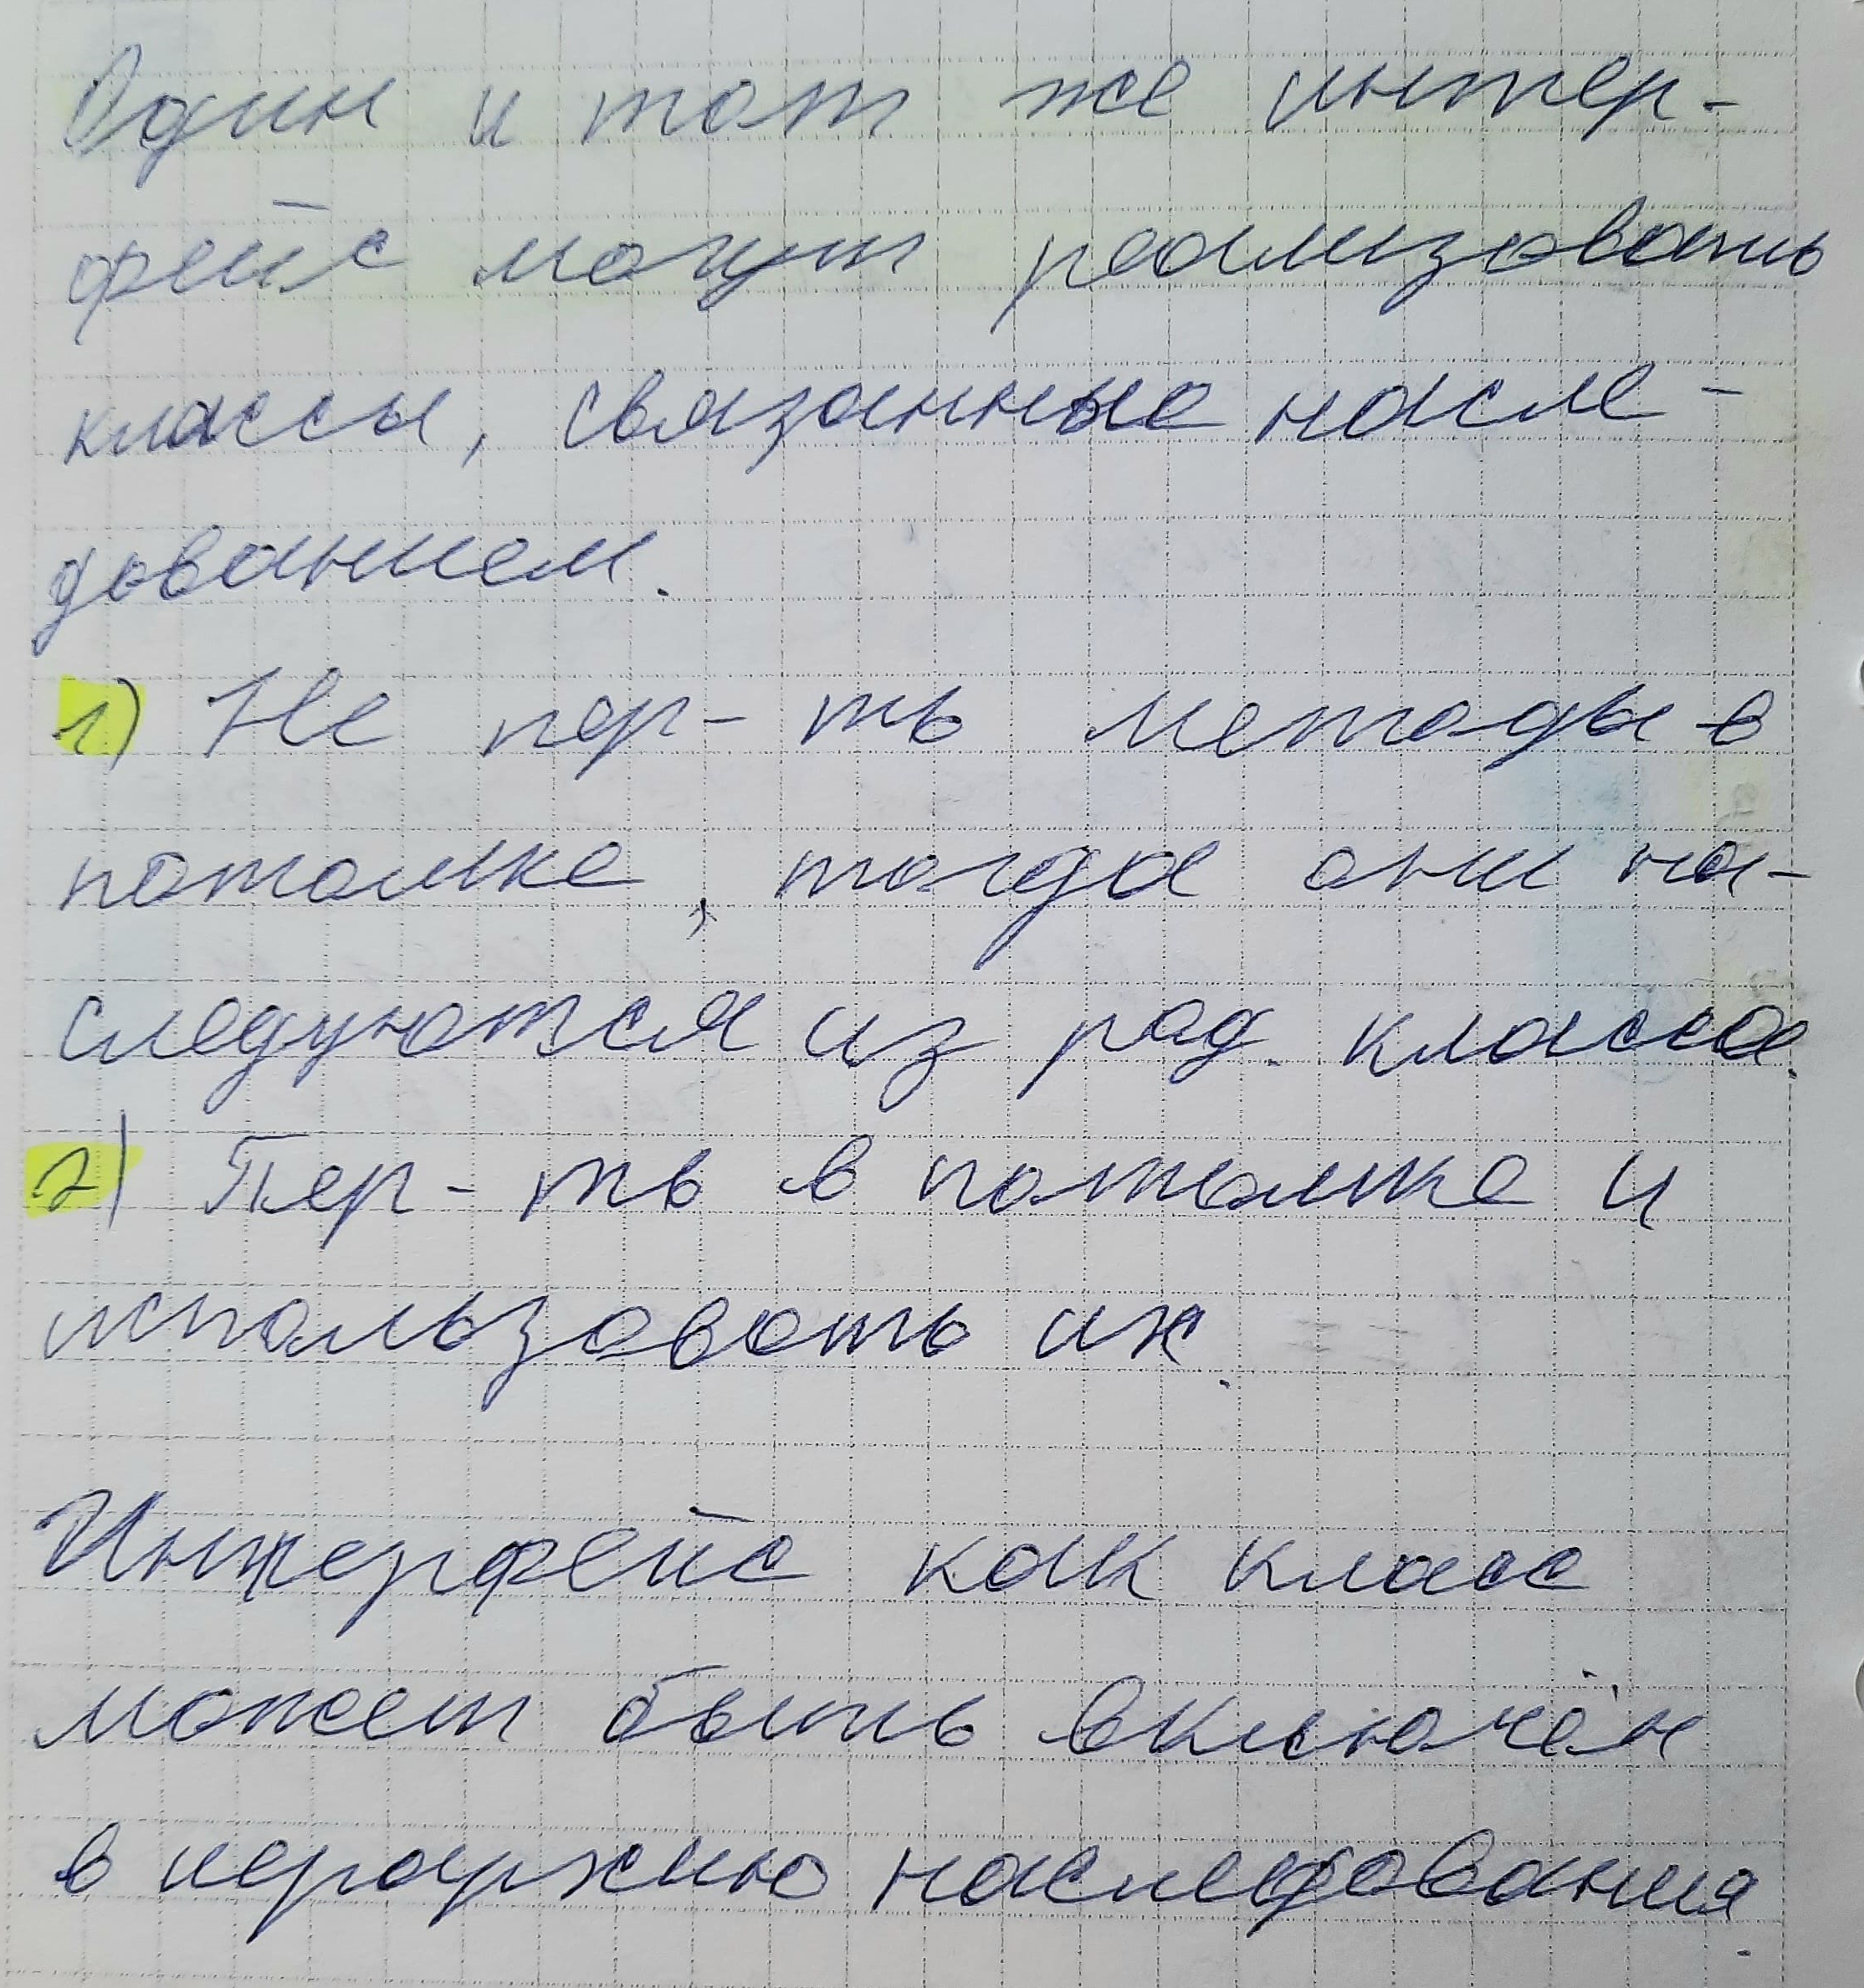 Один и тот же интер-
фейс могут реализовать
классы, связанные насле-
дованием.
1) Не пер-ть методы в
потомке, тогда они на-
следуются из род. класса.
2) Пер-ть в потомке и
использовать их.
Интерфейс как класс
может быть включён
в иерархию наследования.